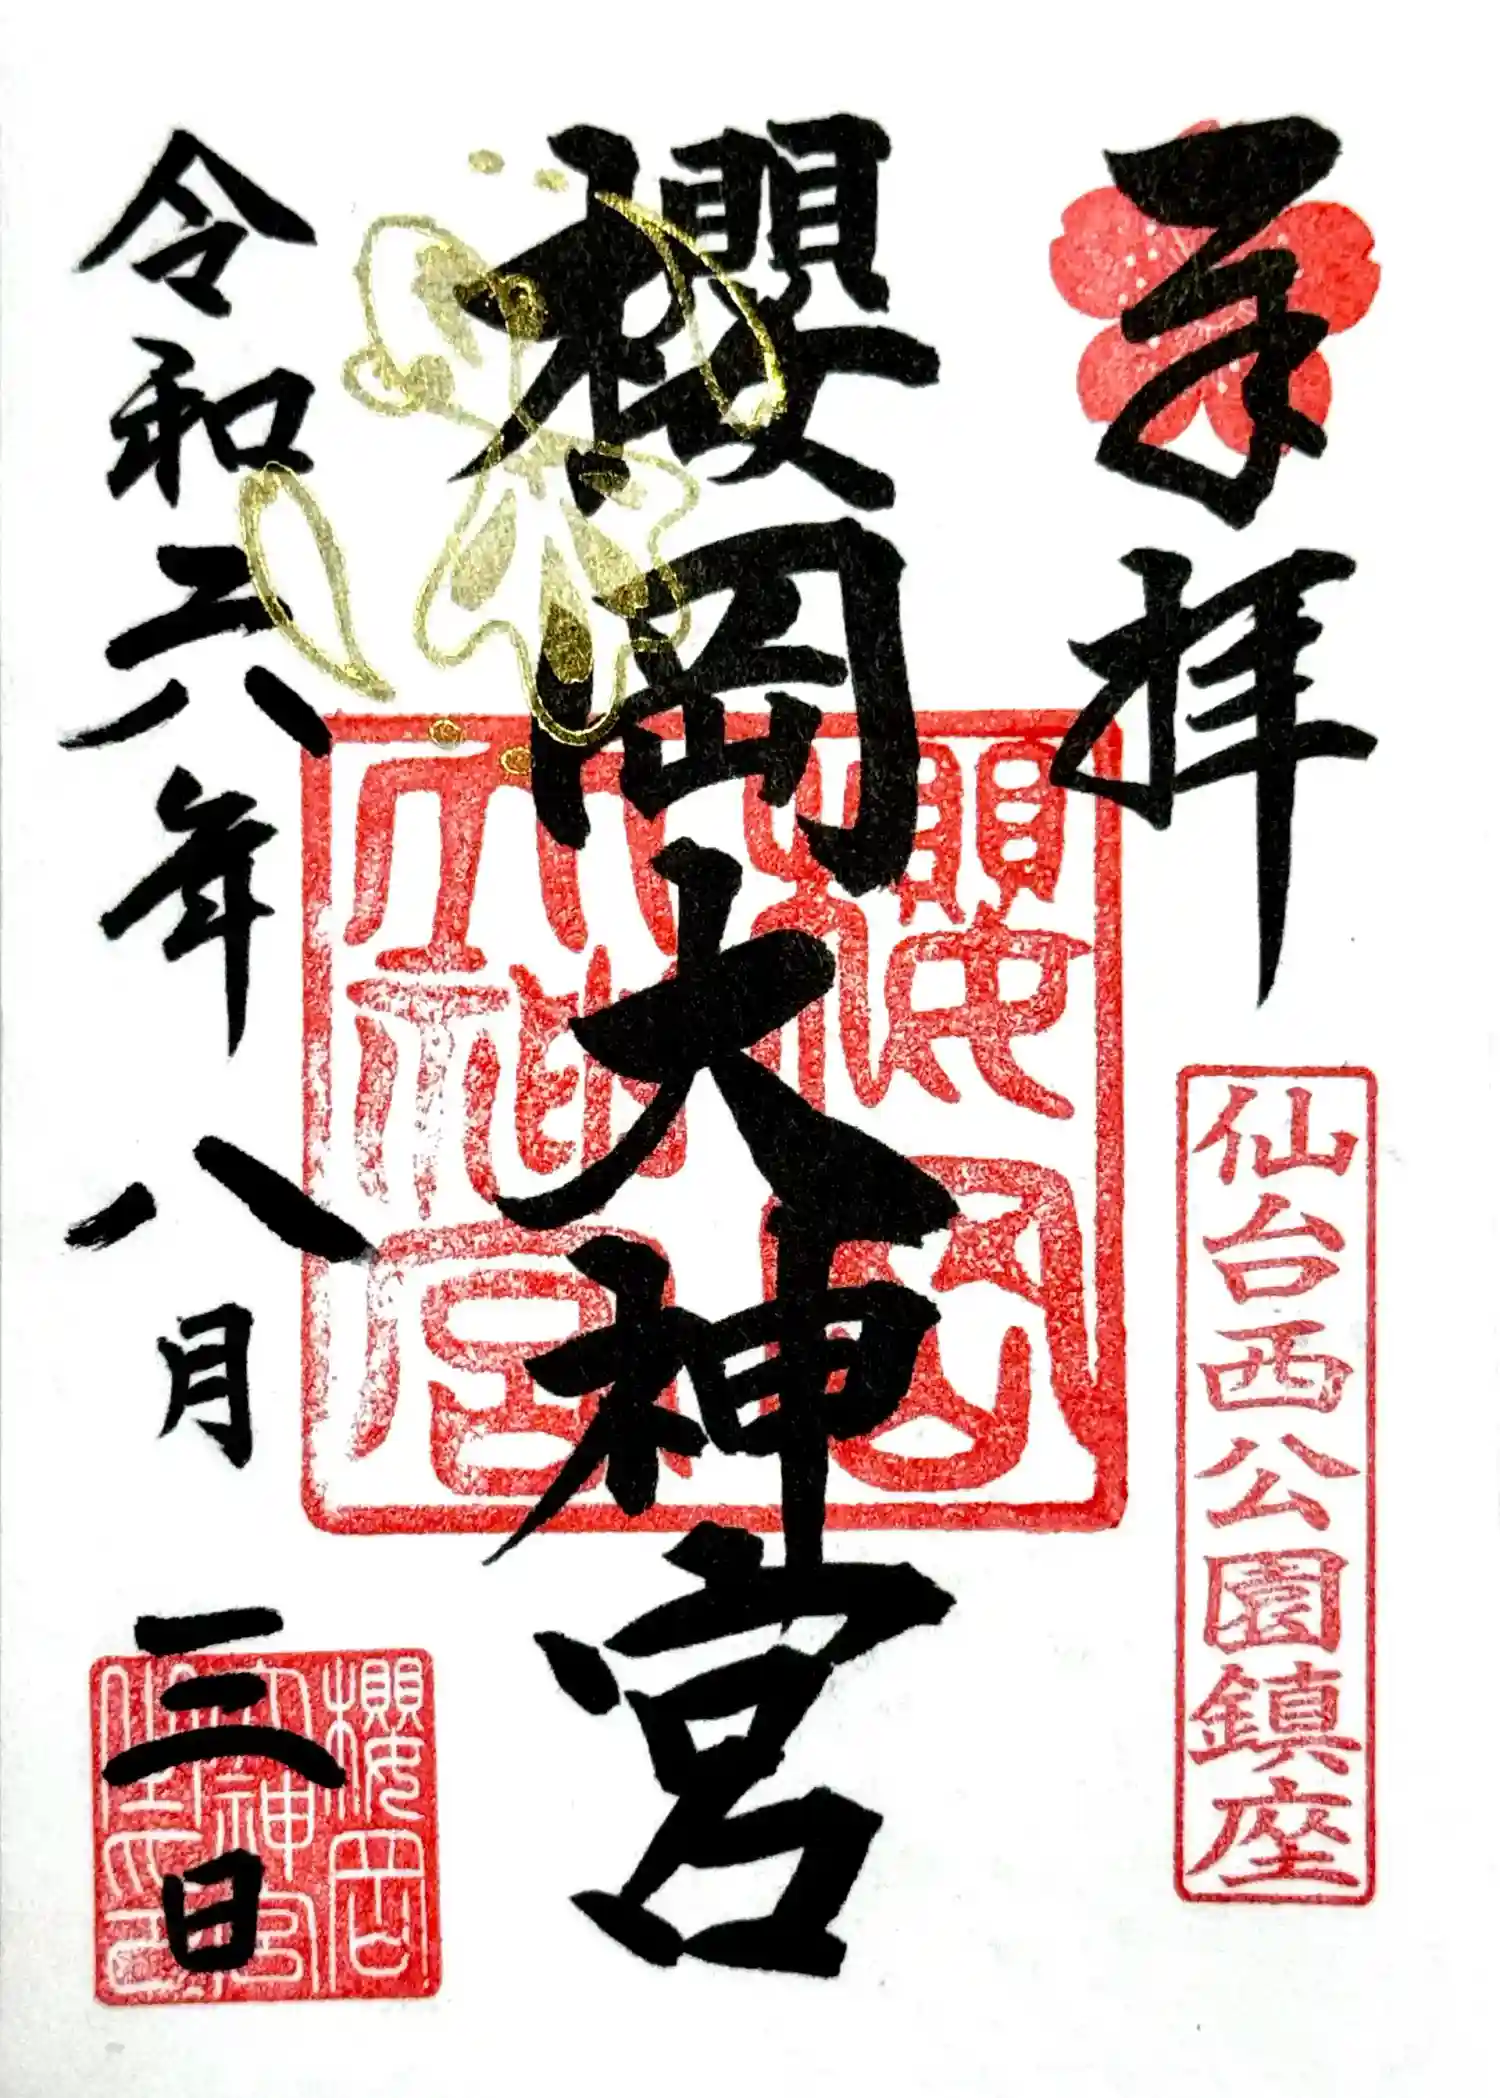 奉拝
仙台西公園鎮座
櫻岡大神宮
櫻岡
大神宮
令和六年八月三日
櫻岡
大神宮